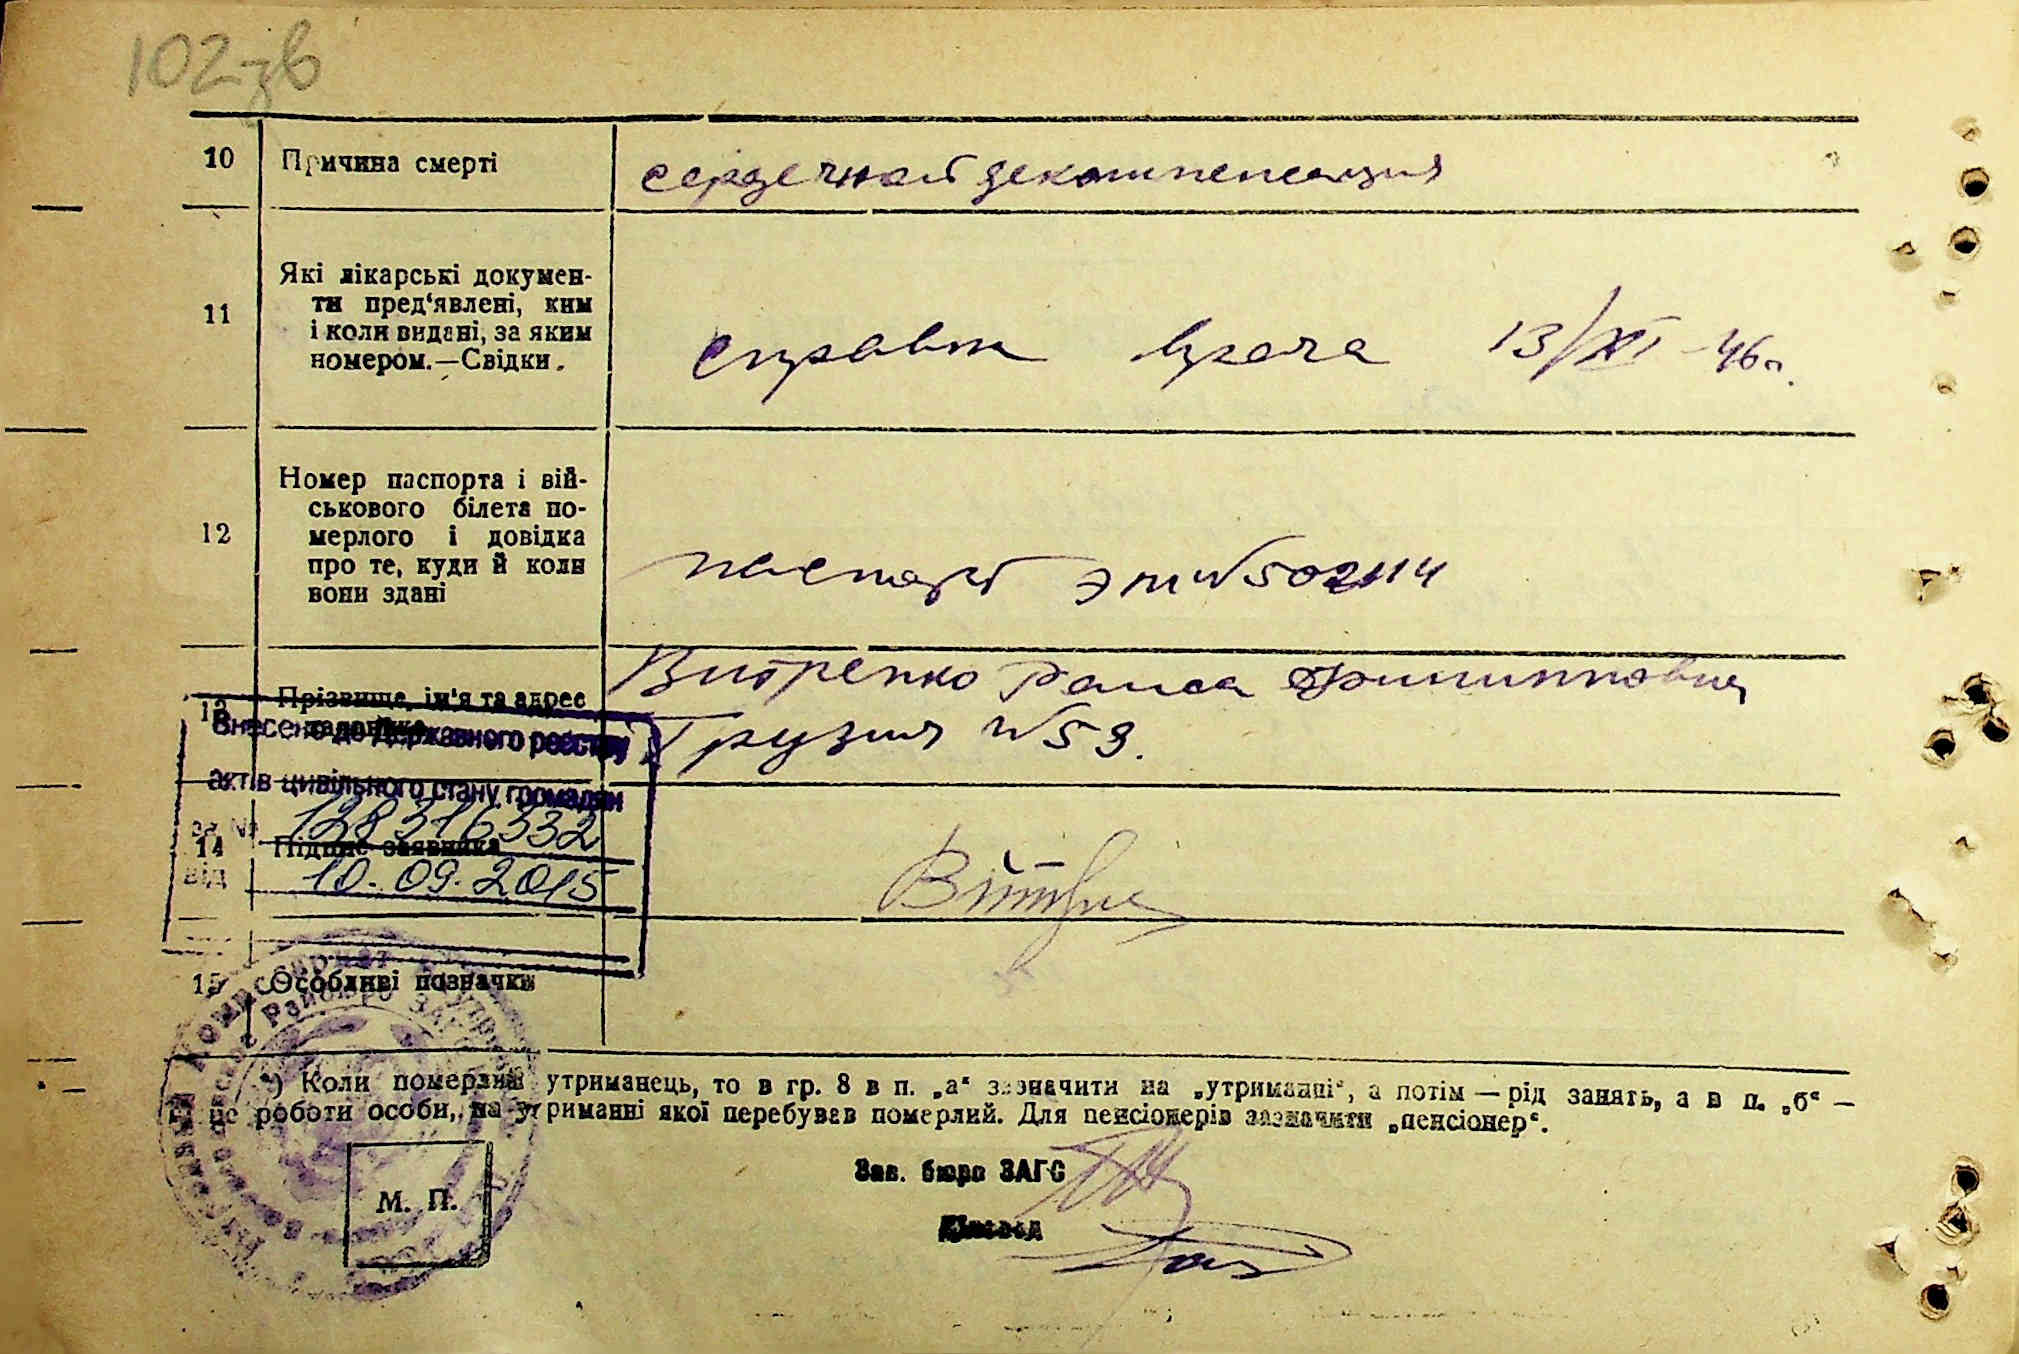 102-зв
10 Причина смерті сердечная декомпенсация
11 Які лікарські докумен-
ти пред‘явлені, ким
і коли видані, за яким
номером.—Свідки.
справка врача 13/XI-46г.
12 Номер паспорта і вій-
ськового білета по-
мерлого і довідка
про те, куди й коли
вони здані
паспорт ЭМ №502114
13 Прізвище, ім'я та адрес
заявника
Витренко Раиса Филипповна
Грузия №59.
Внесено до Державного реєстру
актів цивільного стану громадян
за № 128316332
14 Підпис заявника
від 10.09.2015
15 Особливі позначки
*) Коли померлий утриманець, то в гр. 8 в п. „а“ зазначити на „утриманні“, а потім — рід занять, а в п. „б“ —
це роботи особи, на утриманні якої перебував померлий. Для пенсіонерів зазначити „пенсіонер“.
Зав. бюро ЗАГС
Діловод
М. П.